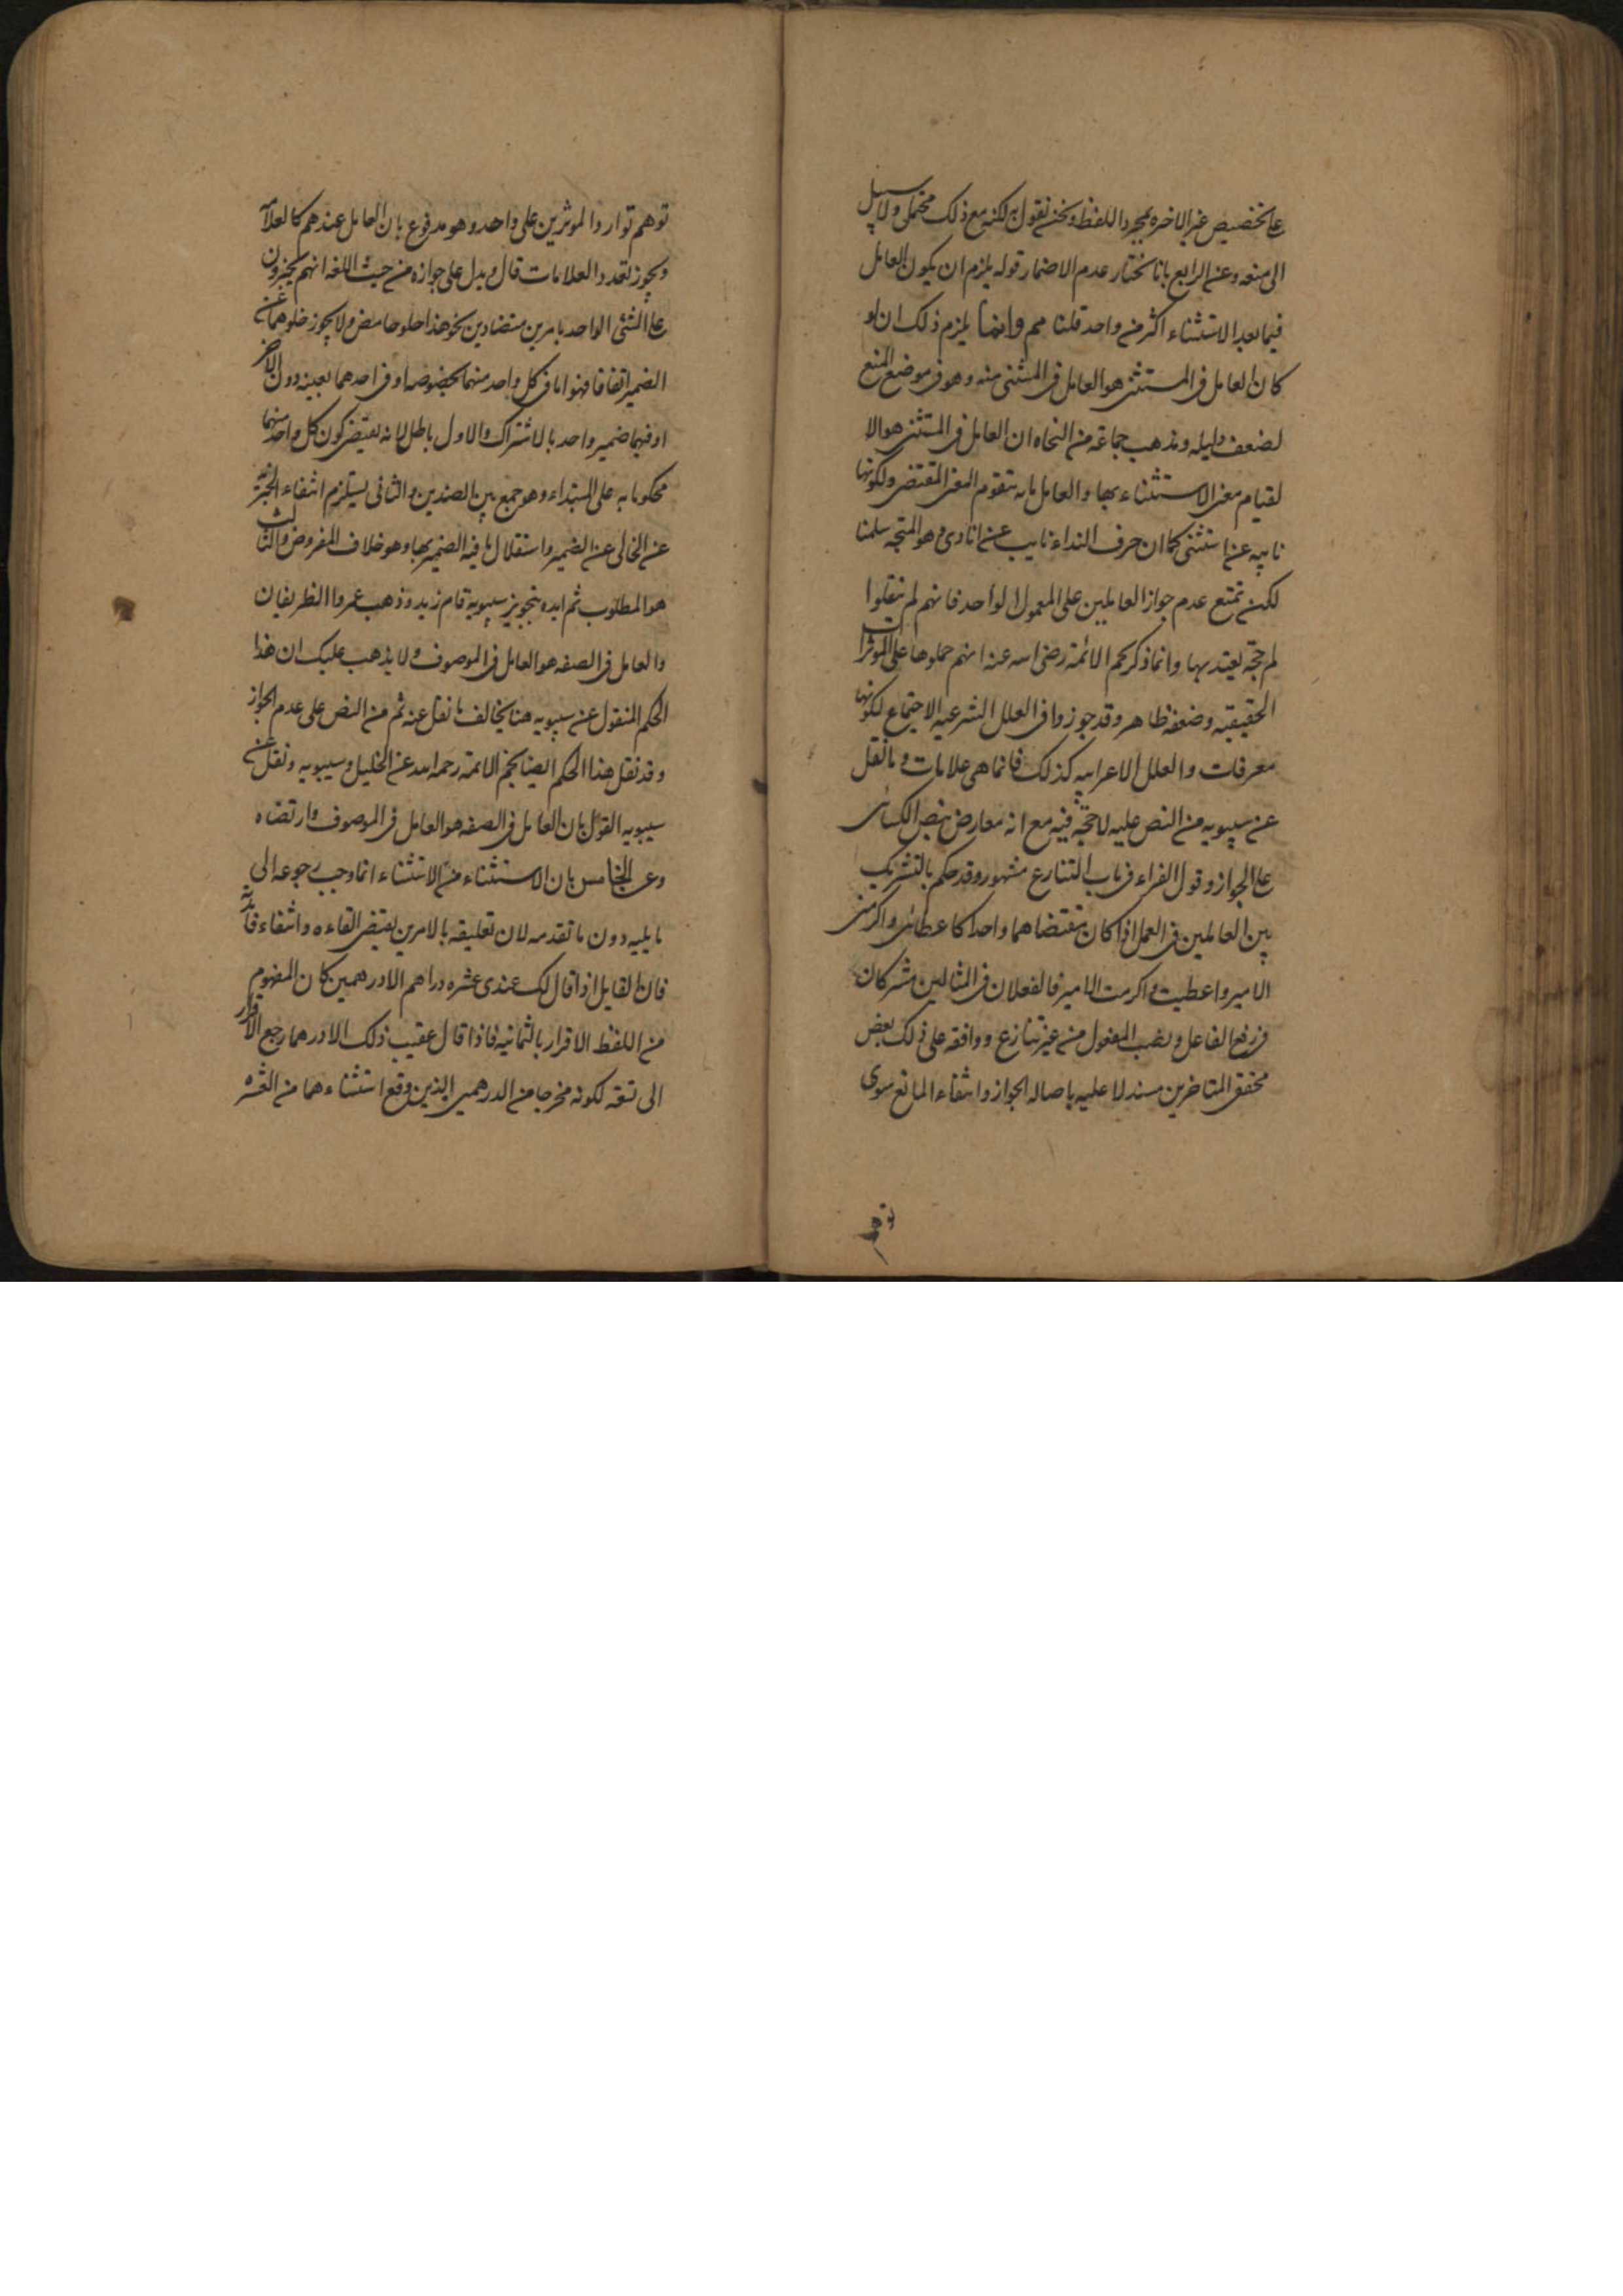 على تخصيص غير الاخيره بمجرد اللفظ ونحن نقول به لكنه مع ذلك محتمل ولا سبيل
الى منعه وعن الرابع بانا نختار عدم الاضمار قوله يلزم ان يكون العامل
فيما بعد الاستثناء اكثر من واحد قلنا مم وانما يلزم ذلك ان لو
كان العامل فى المستثنى هو العامل فى المستثنى منه وهو فى موضع المنع
لضعف دليله ومذهب جماعة من النحاه ان العامل فى المستثنى هو الا
لقيام معنى الاستثناء بها والعامل ما به يتقوم المعنى المقتضى ولكونها
نايبه عن استثنى كما ان حرف النداء نايب عن انادى وهو المتجه سلمنا
لكن نمنع عدم جواز العاملين على المعمول الواحد فانهم لم ينقلوا
لهم حجة يعتد بها وانما ذكر نجم الائمة رضى الله عنه انهم حملوها على الموثرات
الحقيقيه وضعفه ظاهر وقد جوزوا فى العلل الشرعيه الاجتماع لكونها
معرفات والعلل الاعرابيه كذلك فانما هى علامات وما نقل
عن سيبويه من النص عليه لا حجة فيه مع انه معارض بنص الكسائى
على الجواز وقول الفراء فى باب التنازع مشهور وقد حكم بالتشريك
بين العاملين فى العمل اذا كان مقتضاهما واحدا كاعطانى واكرمنى
الامير واعطيت واكرمت الامير فالفعلان فى المثالين مشتركان
فى رفع الفاعل ونصب المفعول من غير تنازع ووافقه على ذلك بعض
محققى المتاخرين مستدلا عليه باصاله الجواز وانتفاء المانع سوى
توهم
توهم توارد الموثرين على واحد وهو مدفوع بان العامل عندهم كالعلامة
ويجوز تعدد العلامات قال ويدل على جوازه من حيث اللغه انهم يخبرون
عن الشئى الواحد بامرين متضادين نحو هذا حلو حامض ولا يجوز خلوهما عن
الضمير اتفاقا فهو اما فى كل واحد منهما بخصوصه او فى احدهما بعينه دون الاخر
او فيهما ضمير واحد بالاشتراك والاول باطل لانه يقتضى كون كل واحد منهما
محكوما به على المبتداء وهو جمع بين الضدين والثانى يستلزم انتفاء الخبرية
عن الخالى عن الضمير واستقلال ما فيه الضمير بها وهو خلاف المفروض والثالث
هو المطلوب ثم ايده بتجويز سيبويه قام زيد وذهب عمرو الظريفان
والعامل فى الصفه هو العامل فى الموصوف ولا يذهب عليك ان هذا
الحكم المنقول عن سيبويه هنا يخالف ما نقل عنه ثم من النص على عدم الجواز
وقد نقل هذا الحكم ايضا نجم الائمة رحمه الله عن الخليل وسيبويه ونقل عن
سيبويه القول بان العامل فى الصفه هو العامل فى الموصوف وارتضاه
وعن الخامس بان الاستثناء من الاستثناء انما وجب رجوعه الى
ما يليه دون ما تقدمه لان تعليقه بالامرين يقتضى الغاءه وانتفاء فائدته
فان القايل اذا قال لك عندى عشره دراهم الا درهمين كان المفهوم
من اللفظ الاقرار بالثمانيه فاذا قال عقيب ذلك الا درهما رجع الاقرار
الى تسعه لكونه مخرجا من الدرهمين الذين وقع استثناءهما من العشره